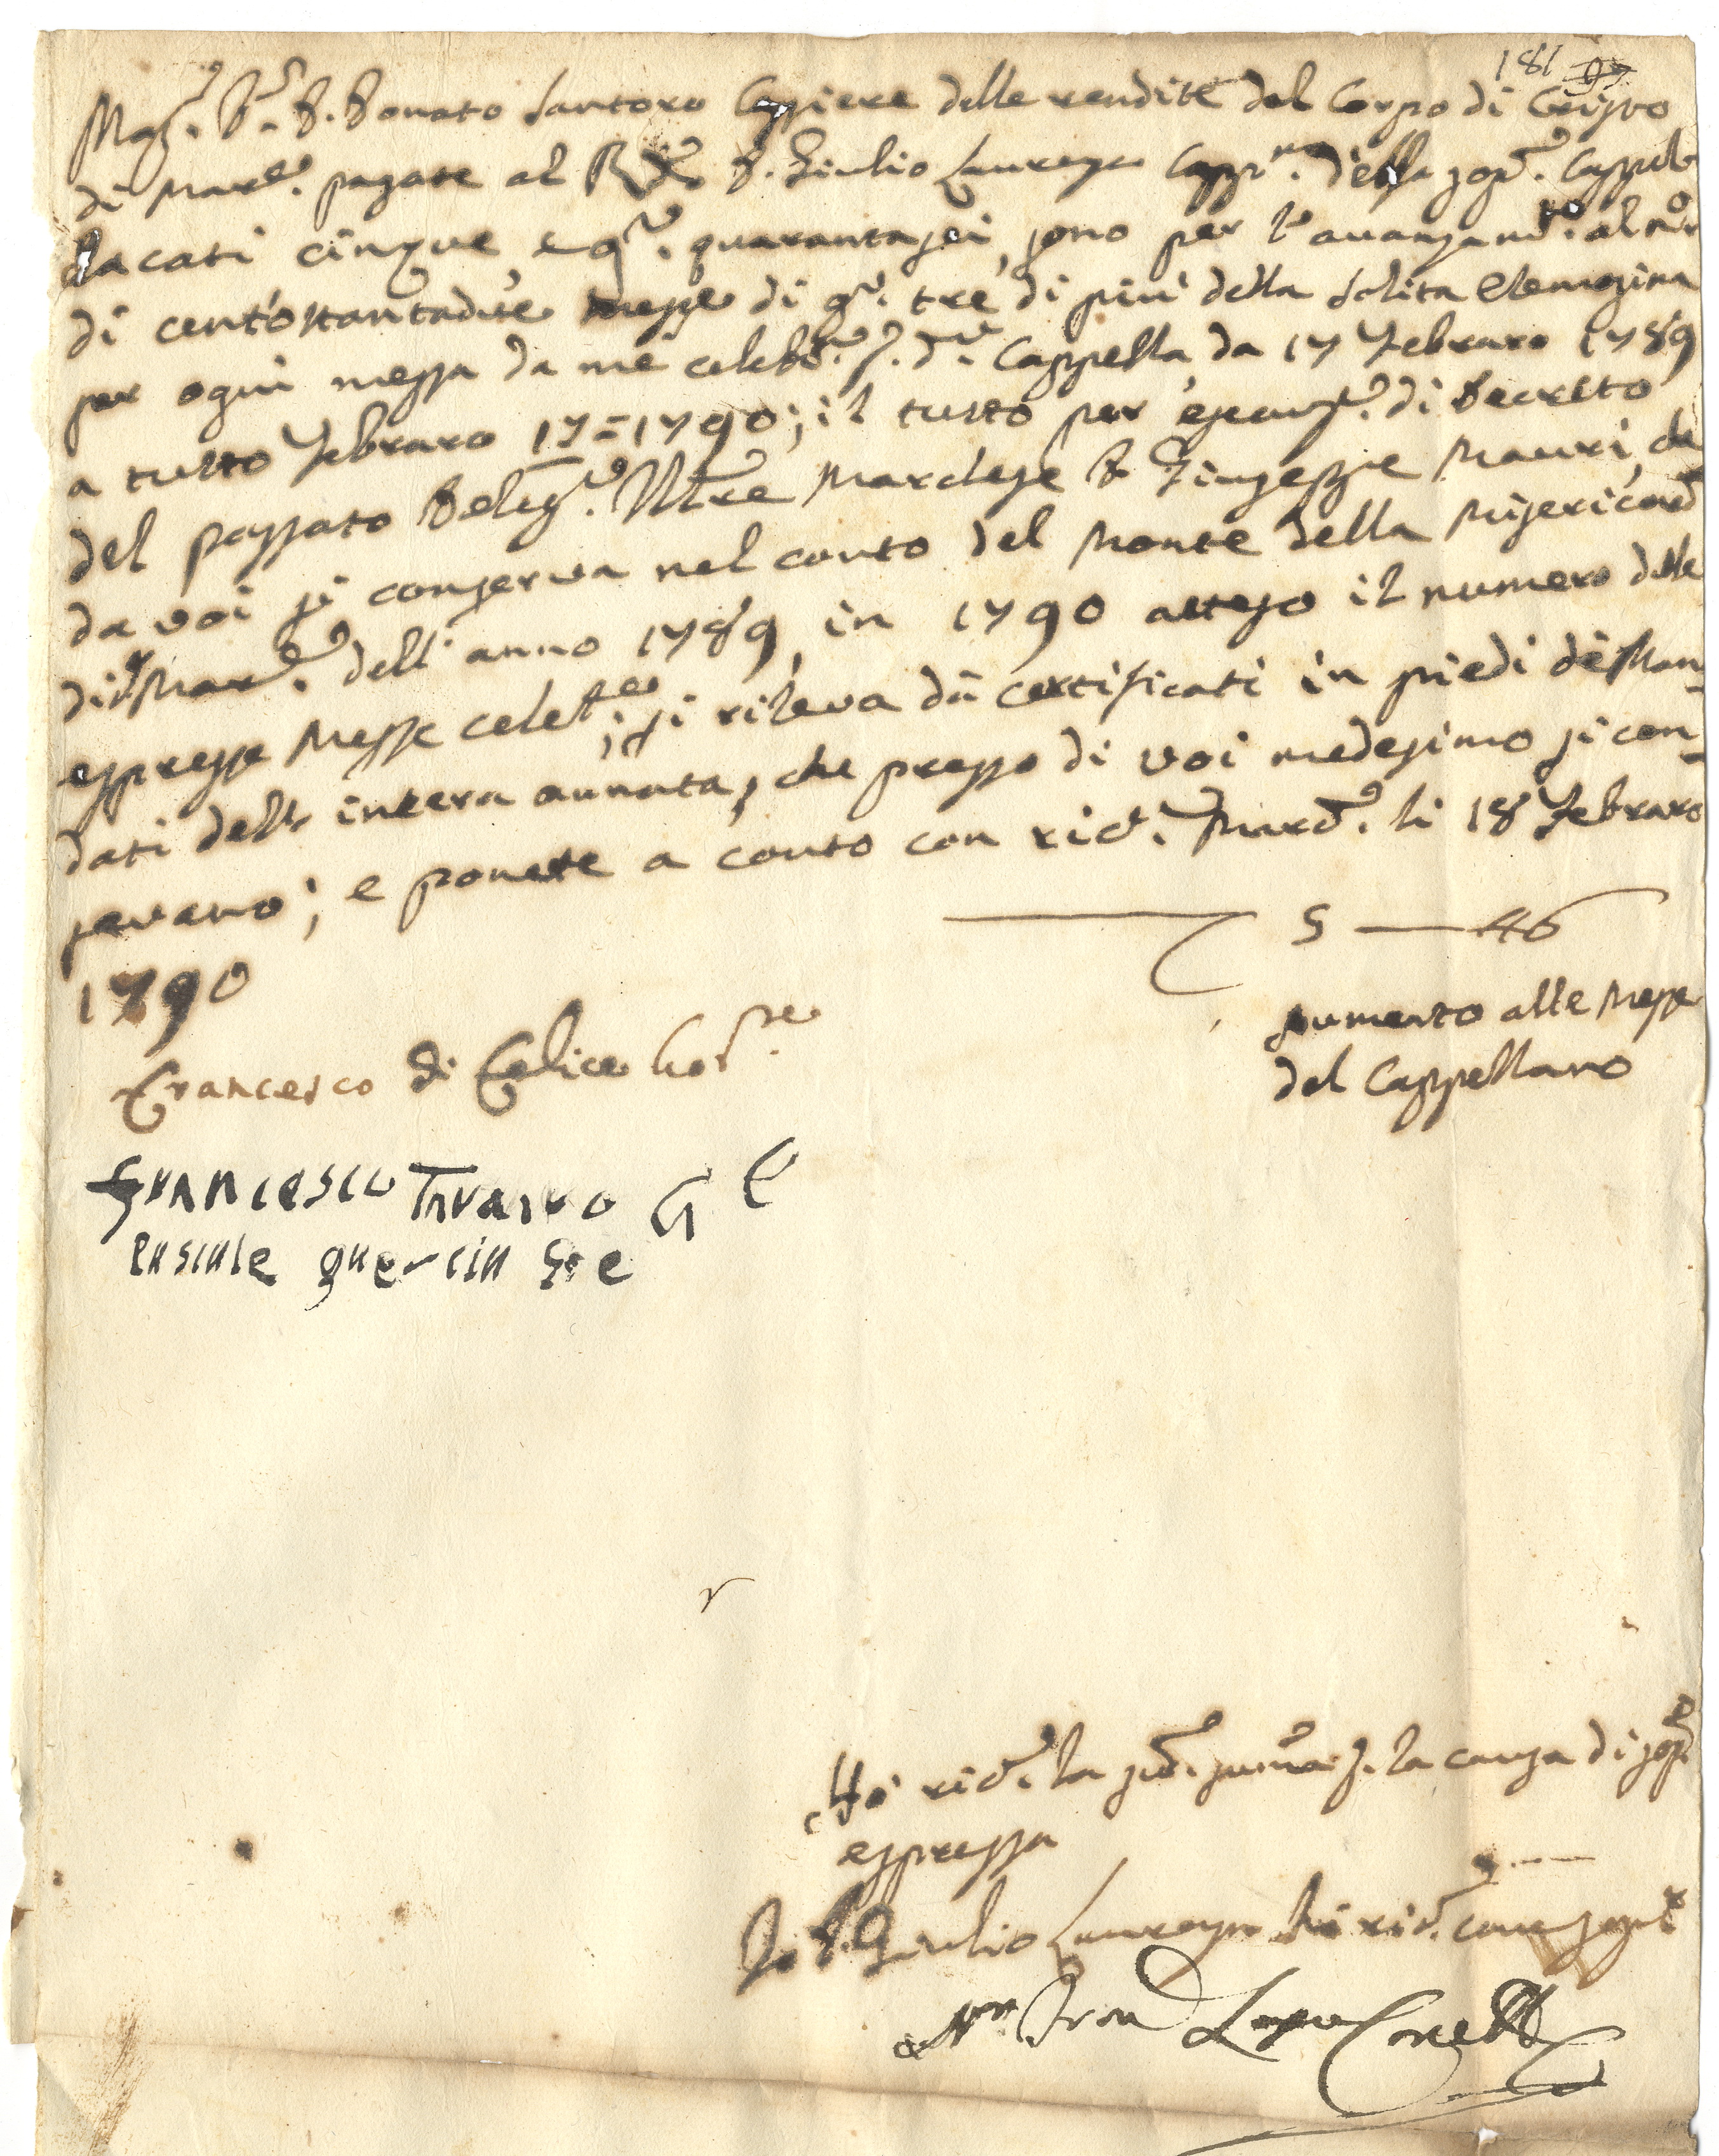 181 97
Mag.co D.r D. Donato Santoro Cassiere delle rendite del Corpo di Cristo
di Mar.e pagate al R.do D. Giulio Laureya Capp.no della sop.a Cappella
ducati cinque, e g.a quarantasei, sono per l'avanzam.to al n.ro
di cent'ottantadue messe di g.a tre di più della solita elemosina
per ogni messa da me celeb.e p. d.a Cappella da 17 Febraro 1789
a tutto Febraro 17=1790; il tutto per esecuz.e di Decreto
del passato Deleg.o Ill.re Marchese D. Giuseppe Mauri, che
da voi si conserva nel conto del Monte della Misericord.
di Mar.e dell'anno 1789, in 1790 atteso il numero delle
espresse Messe celeb.te, si rileva da certificati in piedi de' Man-
dati dell'intera annata, che presso di voi medesimo si con-
servano; e ponete a conto con ric.a Mar.e li 18 Febraro
1790
5 — 46
Aumento alle Messe
del Cappellano
Francesco di Felice Go.re
Francesco G E
Pascale guercia Go e
Hò ric.o la sud.a summa p. la causa di sop.a
espressa
Io D. Giulio Laureya hò ric.o come sopra